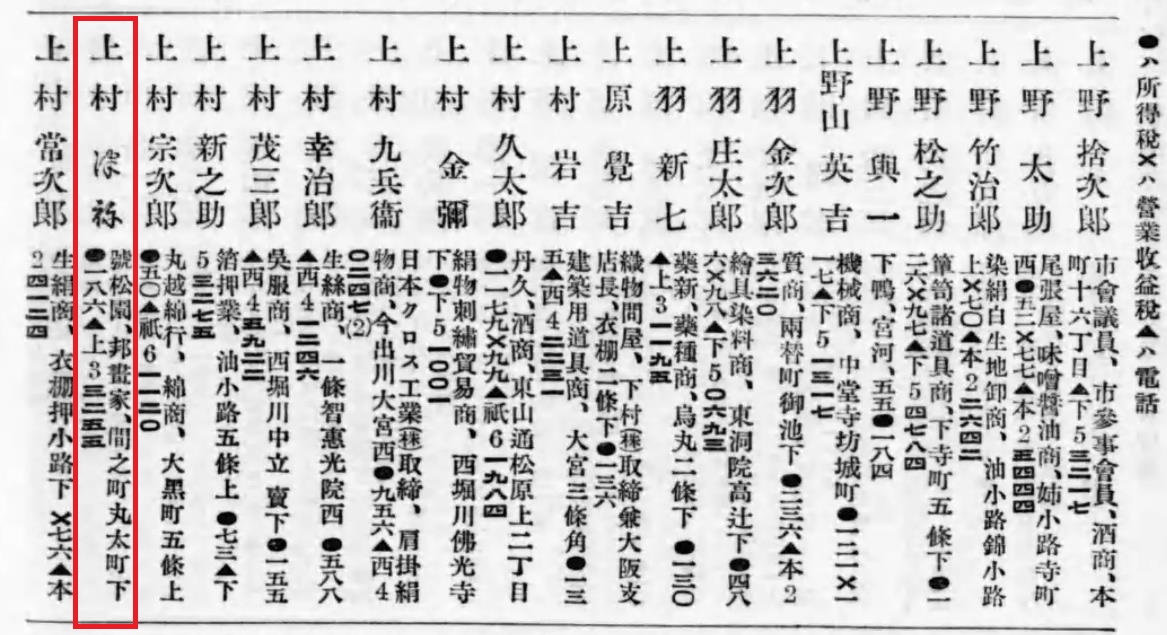 ●ハ所得税×ハ營業收益税▲ハ電話
上野捨次郎
市會議員、市參事會員、酒商、本
町十六丁目▲下5三二一七
上野太助
尾張屋、味噌醬油商、姉小路寺町
西●五二×七七▲本2五四四四
上野竹治郎
染絹白生地卸商、油小路錦小路
上×七〇▲本2二六四二
上野松之助
簞笥諸道具商、下寺町五條下●一
二六×九七▲下5四七八四
上野與一
下鴨、宮河、五五●一八四
上野山英吉
機械商、中堂寺坊城町●一二一×一
一七▲下5一三一七
上羽金次郎
質商、兩替町御池下●二三六▲本2
三六二〇
上羽庄太郎
繪具染料商、東洞院高辻下●四八
六×九八▲下5〇六九三
上羽新七
藥新、藥種商、烏丸二條下●一三〇
▲上3一一九五
上原覺吉
織物問屋、下村㈱取締兼大阪支
店長、衣棚二條下●一三六
上村岩吉
建築用道具商、大宮三條角●一三
五▲西4二二三一
上村久太郎
丹久、酒商、東山通松原上二丁目
●一一七九×九九▲祇6一九八四
上村金彌
絹物刺繡貿易商、西堀川佛光寺
下●下5一〇〇一
上村九兵衞
日本クロス工業㈱取締、肩掛絹
物商、今出川大宮西●九五六▲西4
〇二四七(2)
上村幸治郎
生絲商、一條智惠光院西●五八八
▲西4一二四六
上村茂三郎
吳服商、西堀川中立賣下●一五五
▲西4五九二二
上村新之助
箔押業、油小路五條上●七三▲下
5三二七五
上村宗次郎
丸越綿行、綿商、大黑町五條上
●五〇▲祇6一一二〇
上村津祢
號松園、邦畫家、間之町丸太町下
●一八六▲上3三二五三
上村常次郎
生絹商、衣棚押小路下×七六▲本
2四一二四